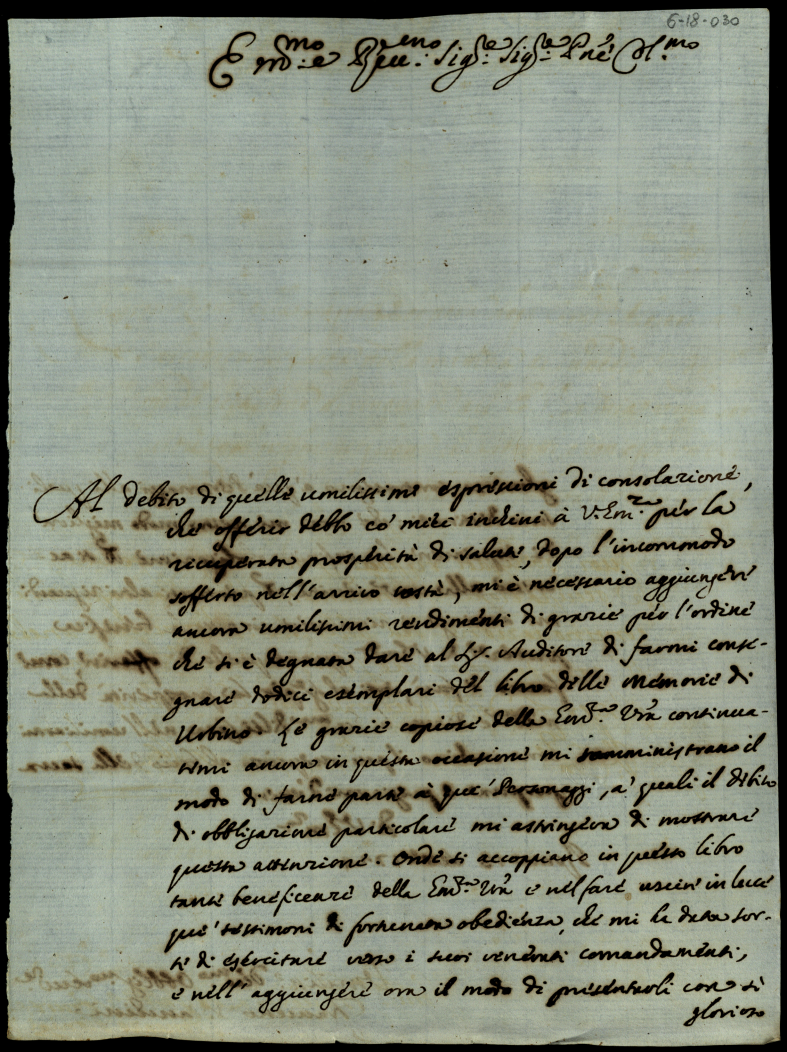 6-18-030
Em.mo e Rev.mo Sig.re Sig.re Pne Col.mo
Al debito di quelle umilissime espressioni di consolazione,
che offerir debbo co' miei inchini à V. Em.za per la
recuperata prosperità di salute, dopo l'incommodo
sofferto nell'arrivo costà, mi è necessario aggiungere
ancora umilissimi rendimenti di grazie per l'ordine
che si è degnata dare al Sig.r Auditore di farmi conse-
gnare dodici esemplari del libro delle Memorie di
Urbino. Le grazie copiose della Em.za Vra continua-
temi ancora in questa occasione mi somministrano il
modo di farne parte à que' Personaggi, a' quali il debito
di obbligazione particolare mi astringeva di mostrare
questa attenzione. Onde si accoppiano in questo libro
tante beneficenze della Em.za Vra e nel fare uscire in luce
que' testimoni di fortunata obedienza, che mi ha data sor-
te di esercitare verso i suoi venerati comandamenti,
e nell'aggiungere ora il modo di presentarli con sì
glorioso